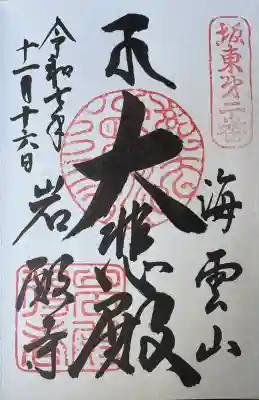 坂東第二番
海雲山
大悲殿
岩殿寺
令和七年
十一月十六日